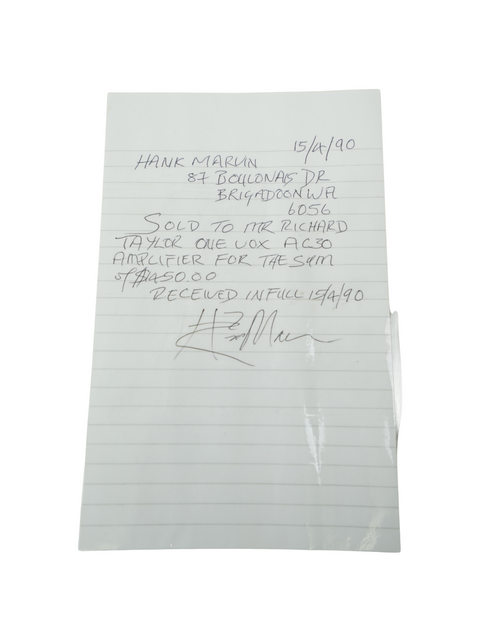 15/4/90
HANK MARVIN
87 BOULONAIS DR
BRIGADOON WA
6056
SOLD TO MR RICHARD
TAYLOR ONE VOX AC30
AMPLIFIER FOR THE SUM
of $450.00
RECEIVED IN FULL 15/4/90